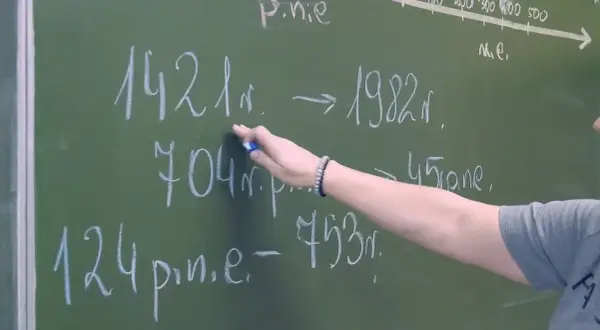 p.n.e
100 200 300 400 500
n.e.
1421r. → 1982r.
704r. p. → 45 p.n.e.
124 p.n.e. – 753r.